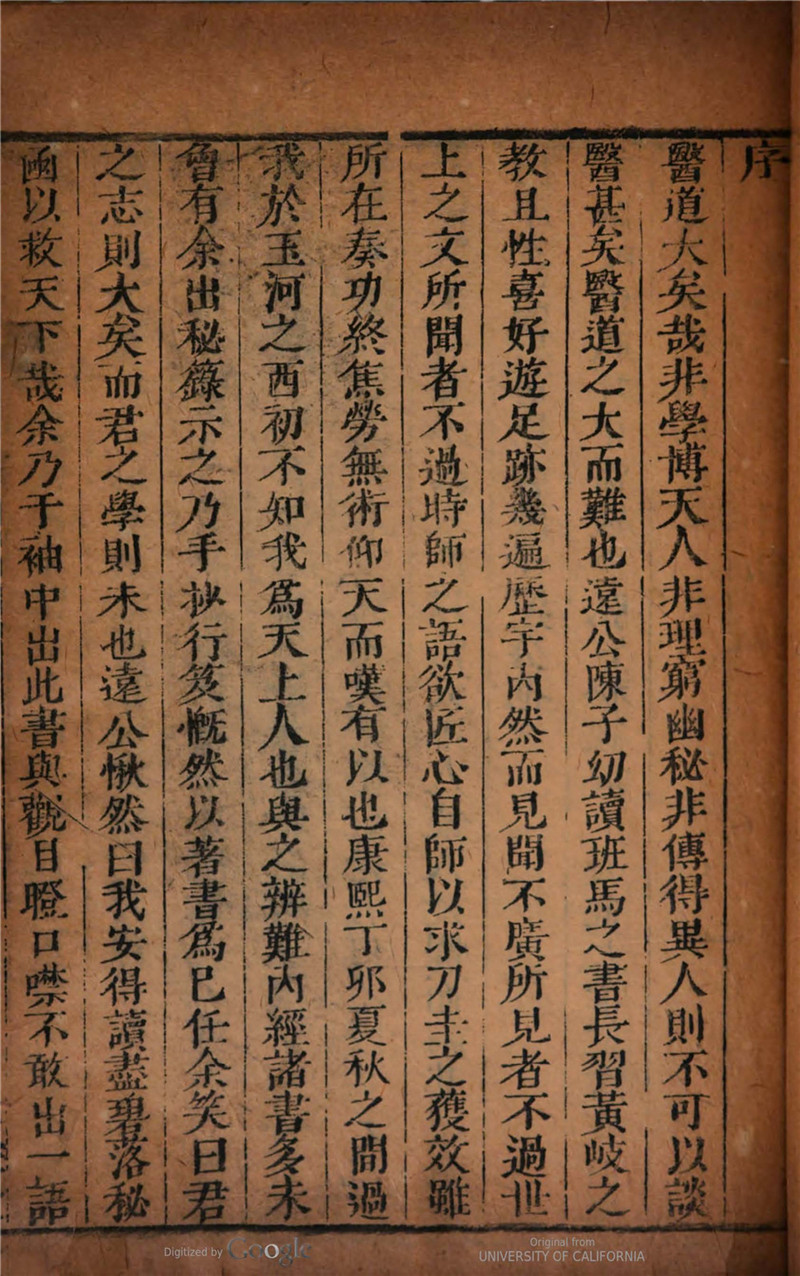 序
醫道大矣哉非學博天人非理窮幽秘非傳得異人則不可以談
醫甚矣醫道之大而難也遠公陳子幼讀班馬之書長習黃岐之
教且性喜好遊足跡幾遍歷宇內然而見聞不廣所見者不過世
上之文所聞者不過時師之語欲匠心自師以求刀圭之獲效雖
所在奏功終焦勞無術仰天而嘆有以也康熙丁卯夏秋之間過
我於玉河之西初不知我爲天上人也與之辨難內經諸書多未
會有余出秘籙示之乃手抄行笈慨然以著書爲己任余笑曰君
之志則大矣而君之學則未也遠公愀然曰我安得讀盡碧落秘
函以救天下哉余乃于袖中出此書與觀目瞪口噤不敢出一語
Digitized by Google
Original from
UNIVERSITY OF CALIFORNIA